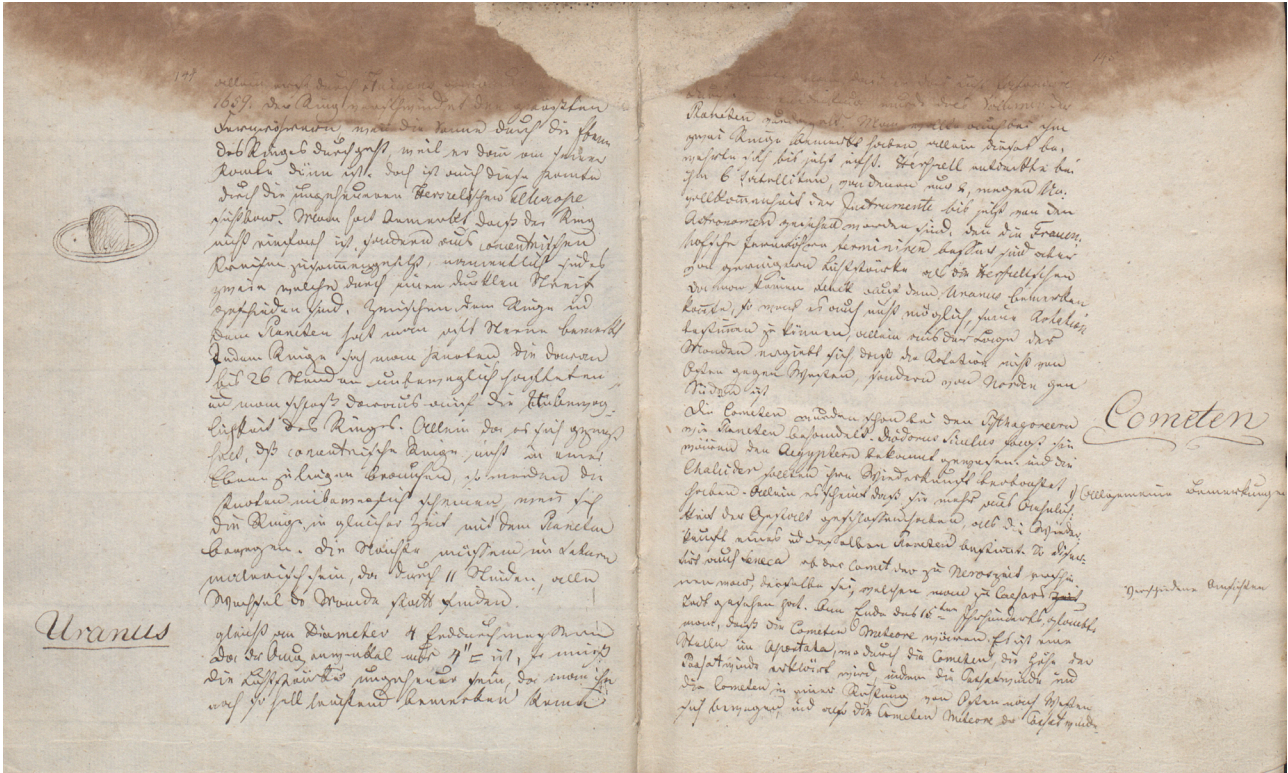 194
allein auch durch
1659. der Ring verschwindet den
Fernröhren, wenn die Sonne durch die Ebene
des Ringes durchgeht weil er dann an seiner
Kante dünn ist. doch ist auch diese Kante
durch die ungeheueren Herschelschen Telescope
sichtbar. Man hat bemerkt daß der Ring
nicht einfach ist, sondern aus concentrischen
Kreisen zusammengesetzt, namentlich sind es
zwei welche durch einen dunklen Streif
geschieden sind. Zwischen dem Ringe und
dem Planeten hat man oft Sterne bemerkt
In dem Ringe sah man Knoten die daran
bis 26 Stunden unbeweglich hafteten
und man schloß daraus auf die Unbeweg-
lichkeit des Ringes. Allein da es sich gezeigt
hat, daß concentrische Ringe nicht in einer
Ebene zu liegen brauchen, so werden die
Knoten unbeweglich scheinen, wenn sich
die Ringe in gleicher Zeit mit dem Planeten
bewegen. Die Nächte müssen im Saturn
malerisch sein, da durch 11 Stunden, alle
Wechsel der Monde statt finden.
Uranus
gleicht am Diameter 4 Erddurchmessern
Da der Augenwinkel nur 4" ist, so muß
die Lichtstärke ungeheuer sein, da man ihn
noch so hell leuchtend bemerken kann
195
Planeten Man wollte auch bei ihm
zwei Ringe bemerkt haben, allein dieses be-
währte sich bis jetzt nicht. Herschell entdeckte bei
ihm 6 Satelliten, von denen nur 2, wegen Un-
vollkommenheit der Instrumente bis jetzt von den
Astronomen gesehen worden sind, den die Frauen-
hofsche Fernröhre besser sind aber
von geringerer Lichtstärke als die Herschellschen
Da man keinen Fleck auf dem Uranus bemerken
konnte, so war es auch nicht möglich seine Rotation
bestimmen zu können, allein aus der Lage der
Monden ergiebt sich daß die Rotation nicht von
Osten gegen Westen, sondern von Norden gen
Süden ist
Cometen
Die Cometen wurden schon bei den Pythagoreern
wie Planeten behandelt. Diodorus Siculus sagt sie
wären den Aegyptern bekannt gewesen. und die
Chaldäer sollten ihre Wiederkunft beobachtet
haben. Allein es scheint daß sie mehr aus Aehnlich-
Allgemeine Bemerkung
keit der Gestalt geschlossen haben, als die Wieder-
kunft eines und desselben Planeten bestimmt. So
auch Seneca ob der Comet der zu Neroszeit
nen war, derselbe sei, welchen man zu Caesars
verschiedne Ansichten
Tod gesehen hat. Am Ende des 16ten Jahrhunderts glaubte
man, daß die Cometen Meteore wären. Es ist eine
Stelle im wo durch die Cometen, die Höhe der
Passatwinde erklärt wird, indem die Passatwinde und
die Cometen in einer Richtung von Osten nach Westen
sich bewegen, und also die Cometen Meteore der